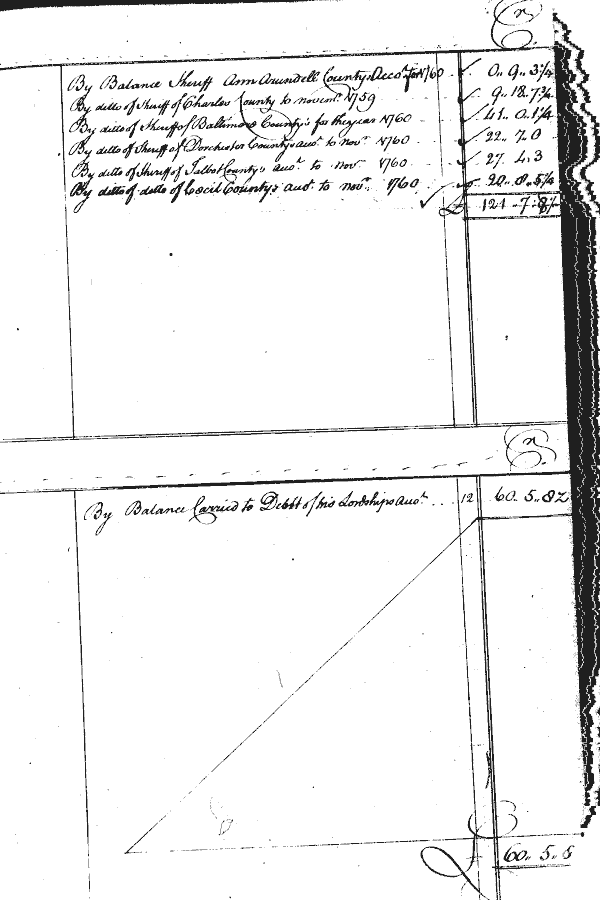 Cr
By Balance Sheriff Ann Arundell County's Acco.t for 1760 0.. 9.. 3 1/4
By ditto of Sheriff of Charles County to novem.r 1759 9.. 18.. 7 3/4
By ditto of Sheriff of Baltimore County's for the year 1760 41.. 0.. 1 1/4
By ditto of Sheriff of Dorchester County's acc.t to nov.r 1760 22.. 7.. 0
By ditto of Sheriff of Talbot County's acc.t to nov.r 1760 27.. 4.. 3
By ditto of ditto of Cecil County's acc.t to nov.r 1760 20.. 8.. 5 1/4
£ 121.. 7..
Cr
By Balance Carried to Debt of his Lordships acc.t 12 60.. 5.. 8
£ 60.. 5.. 8